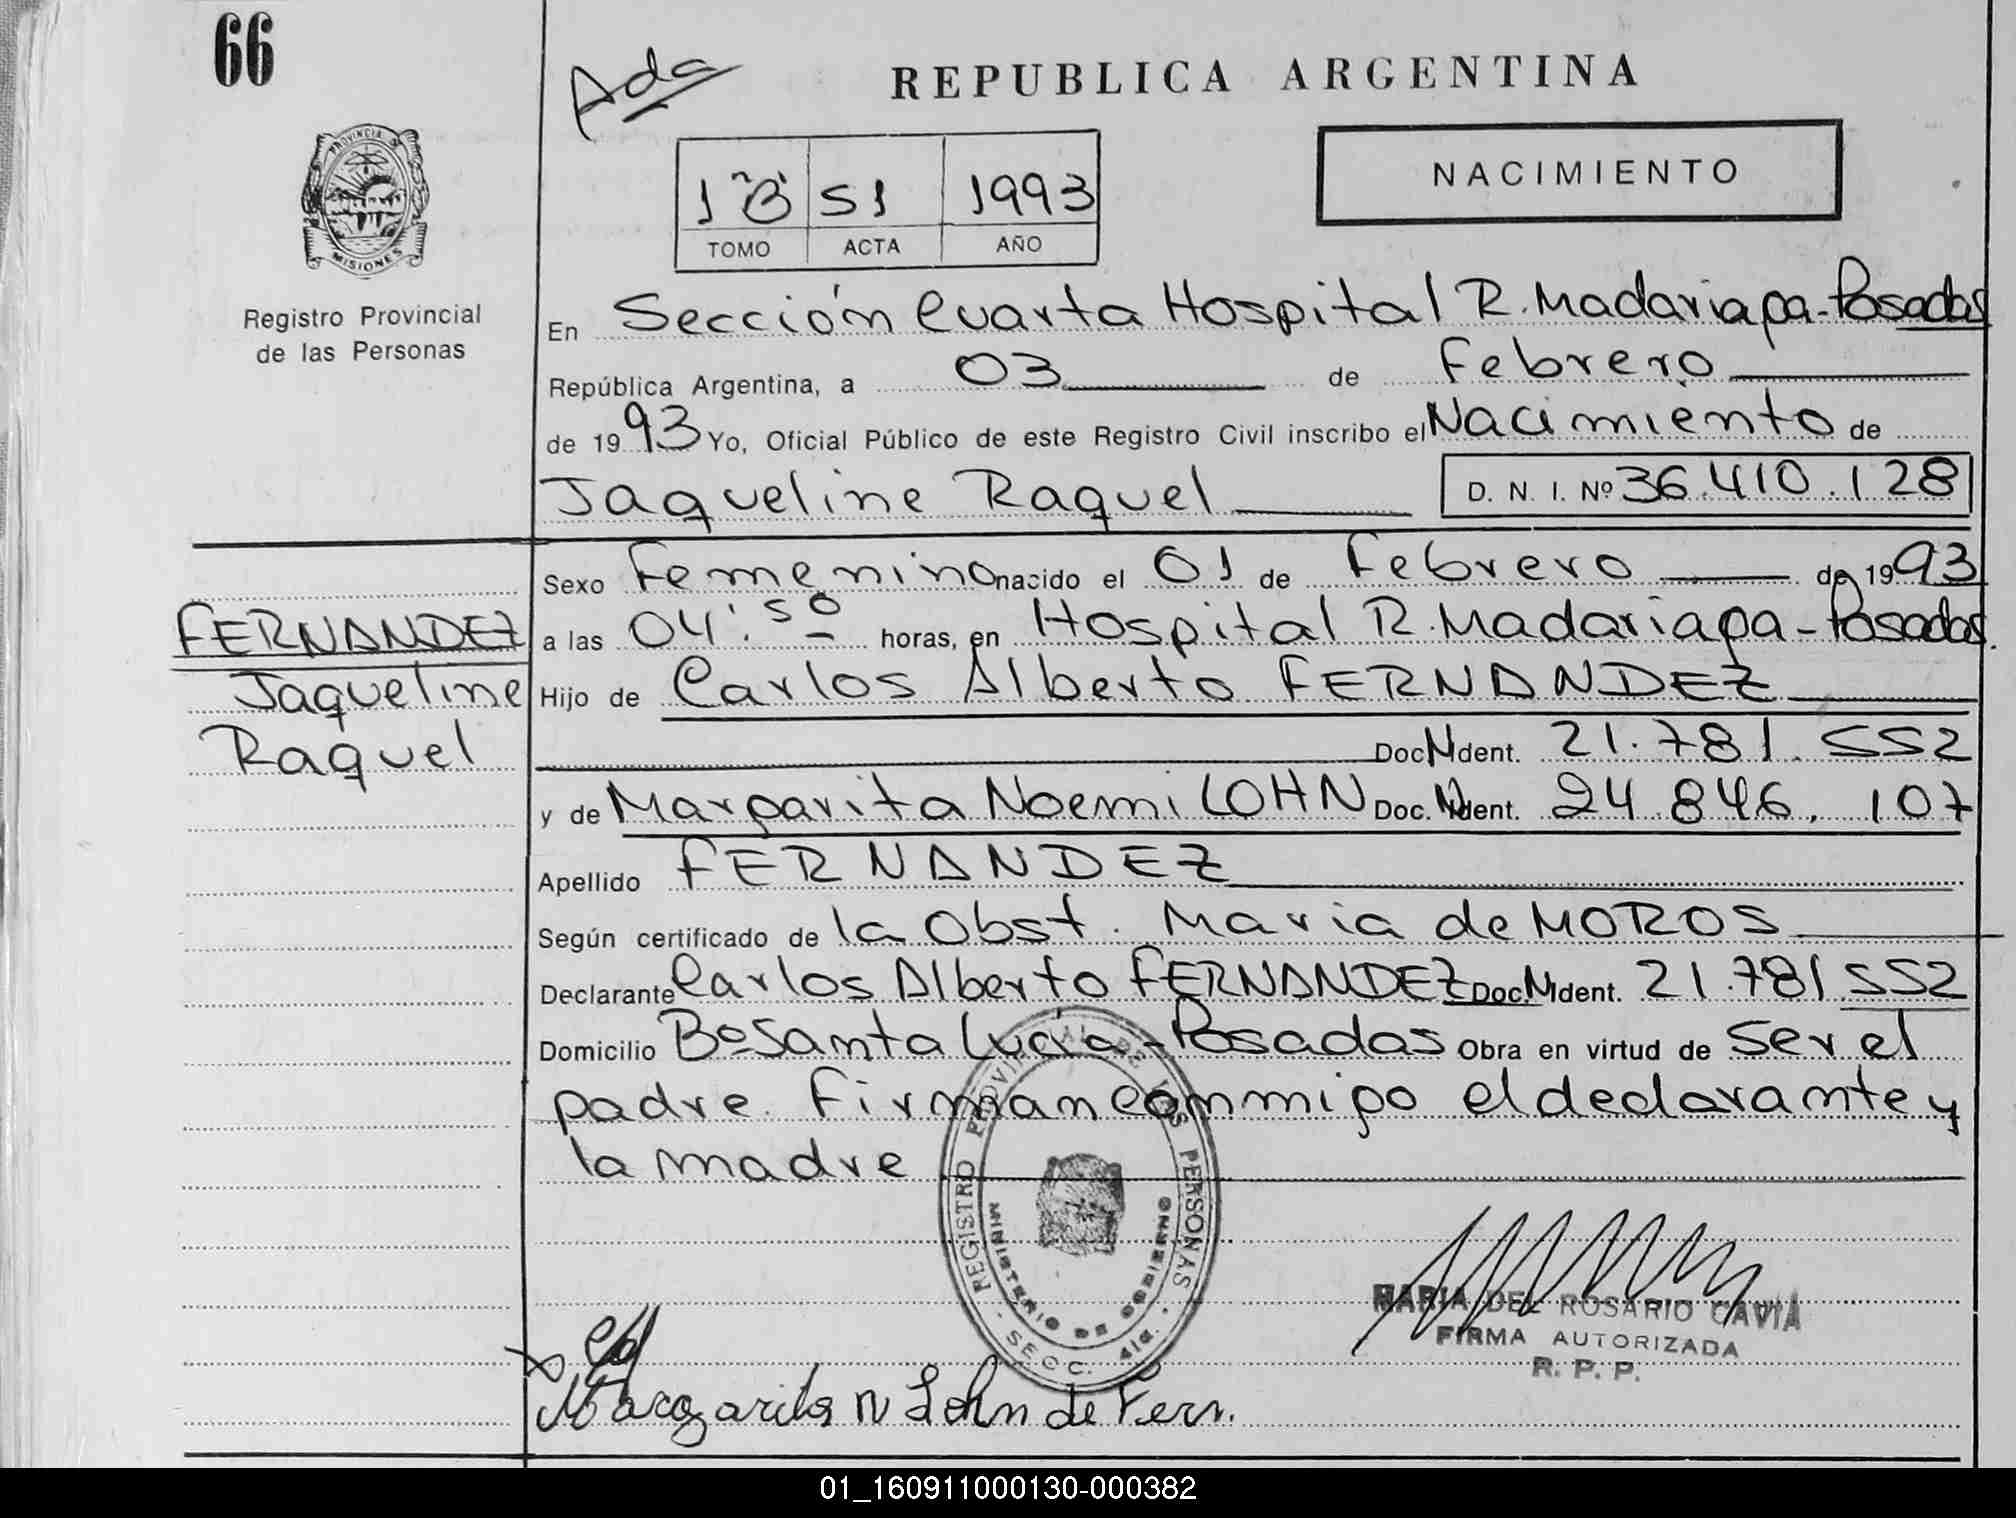 66
Ada
REPUBLICA ARGENTINA
PROVINCIA
MISIONES
Registro Provincial
de las Personas
1 "B" 51 1993
TOMO ACTA AÑO
NACIMIENTO
En Sección Cuarta Hospital R. Madariaga - Posadas
República Argentina, a 03 de Febrero
de 1993 Yo, Oficial Público de este Registro Civil inscribo el Nacimiento de
Jaqueline Raquel D. N. I. Nº 36.410.128
Sexo Femenino nacido el 01 de Febrero de 1993
FERNANDEZ
Jaqueline
Raquel
a las 04:50 horas, en Hospital R. Madariaga - Posadas.
Hijo de Carlos Alberto FERNANDEZ
Doc. N Ident. 21.781.552
y de Margarita Noemi LOHN Doc. N Ident. 24.846.107
Apellido FERNANDEZ
Según certificado de la Obst. Maria de MOROS
Declarante Carlos Alberto FERNANDEZ Doc. N Ident. 21.781.552
Domicilio Bº Santa Lucía - Posadas Obra en virtud de ser el
padre. Firman conmigo el declarante y
la madre
REGISTRO PROVINCIAL DE LAS PERSONAS
MINISTERIO DE GOBIERNO
- SECC. 4ta. -
MARIA DEL ROSARIO CAVIA
FIRMA AUTORIZADA
R. P. P.
Margarita N Lohn de Fern.
01_160911000130-000382